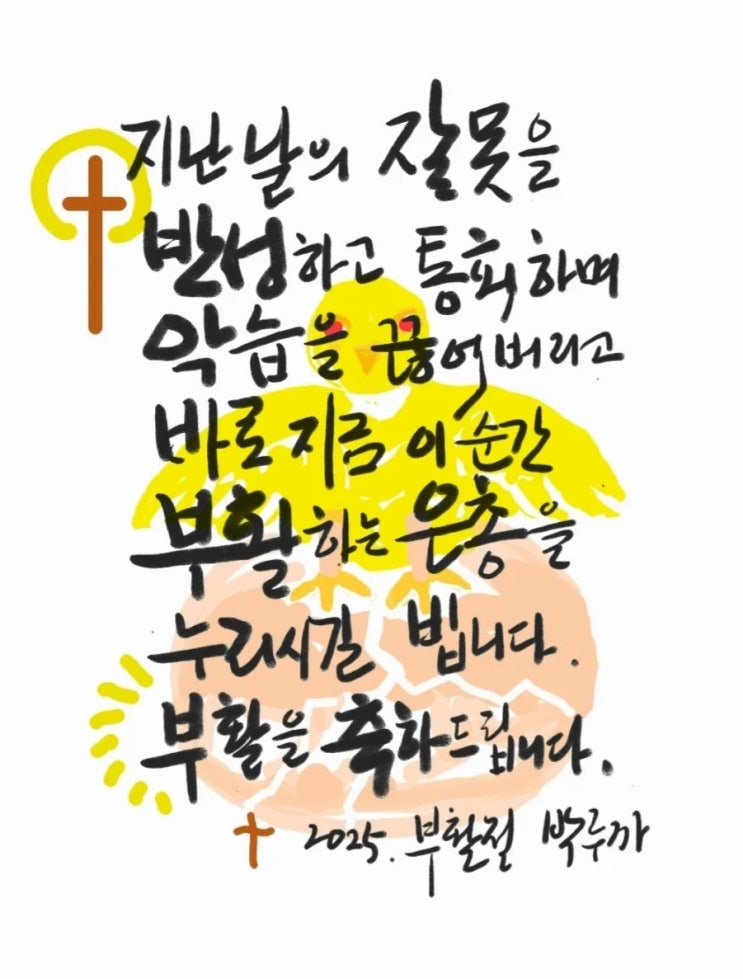 지난날의 잘못을
반성하고 통회하며
악습을 끊어버리고
바로 지금 이 순간
부활하는 은총을
누리시길 빕니다.
부활을 축하드립니다.
2025. 부활절 박루까